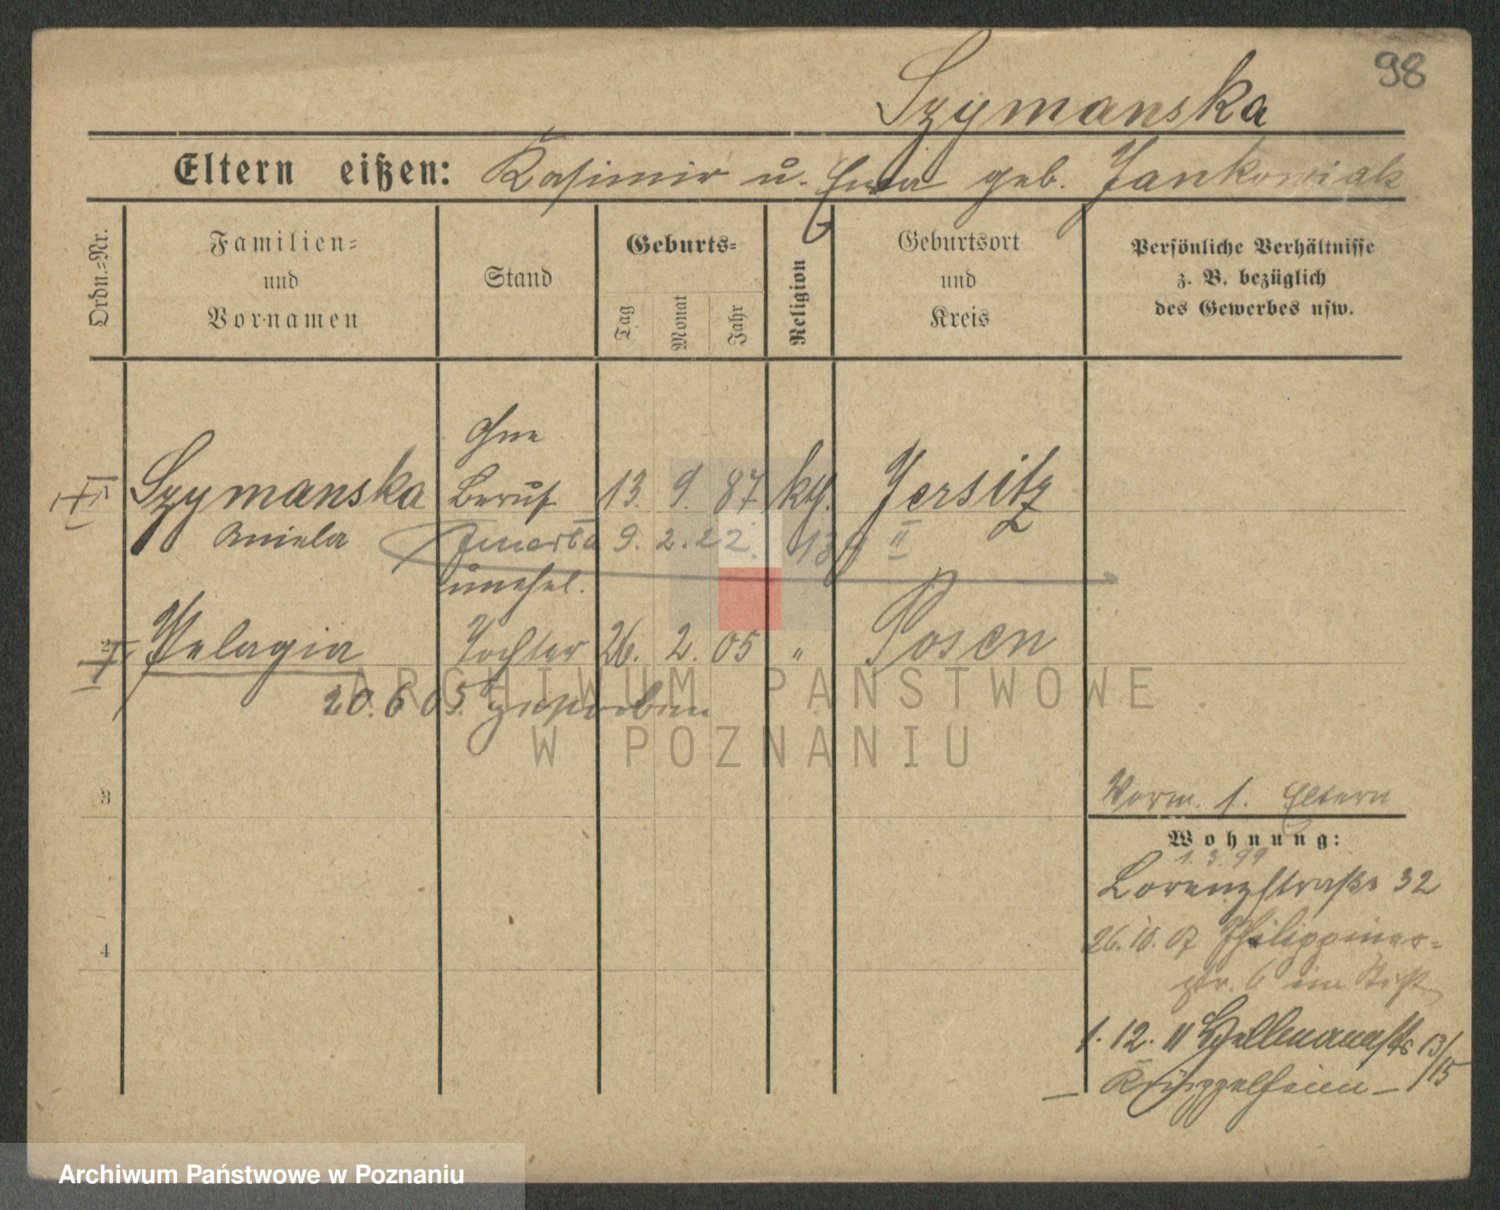 98
Szymanska
Eltern eißen: Kasimir u. Ewa geb. Jankowiak
Ordn.-Nr.
Familien-
und
Vornamen
Stand
Geburts-
Tag
Monat
Jahr
Religion
Geburtsort
und
Kreis
Persönliche Verhältnisse
z. B. bezüglich
des Gewerbes usw.
1 Szymanska ohne Beruf 13. 9. 87 kth. Jersitz
Aniela
9. 2. 22. II
unehel.
2 Pelagia Tochter 26. 2. 05 " Posen
20. 6 05. gestorben
3
4
Vorm. 1. Eltern
Wohnung:
1. 3. 99
Lorenzstraße 32
26. 10. 07 Philippiner-
str. 6 im Stift
1. 12. 11 13/15
Krüppelheim
ARCHIWUM PAŃSTWOWE
W POZNANIU
Archiwum Państwowe w Poznaniu